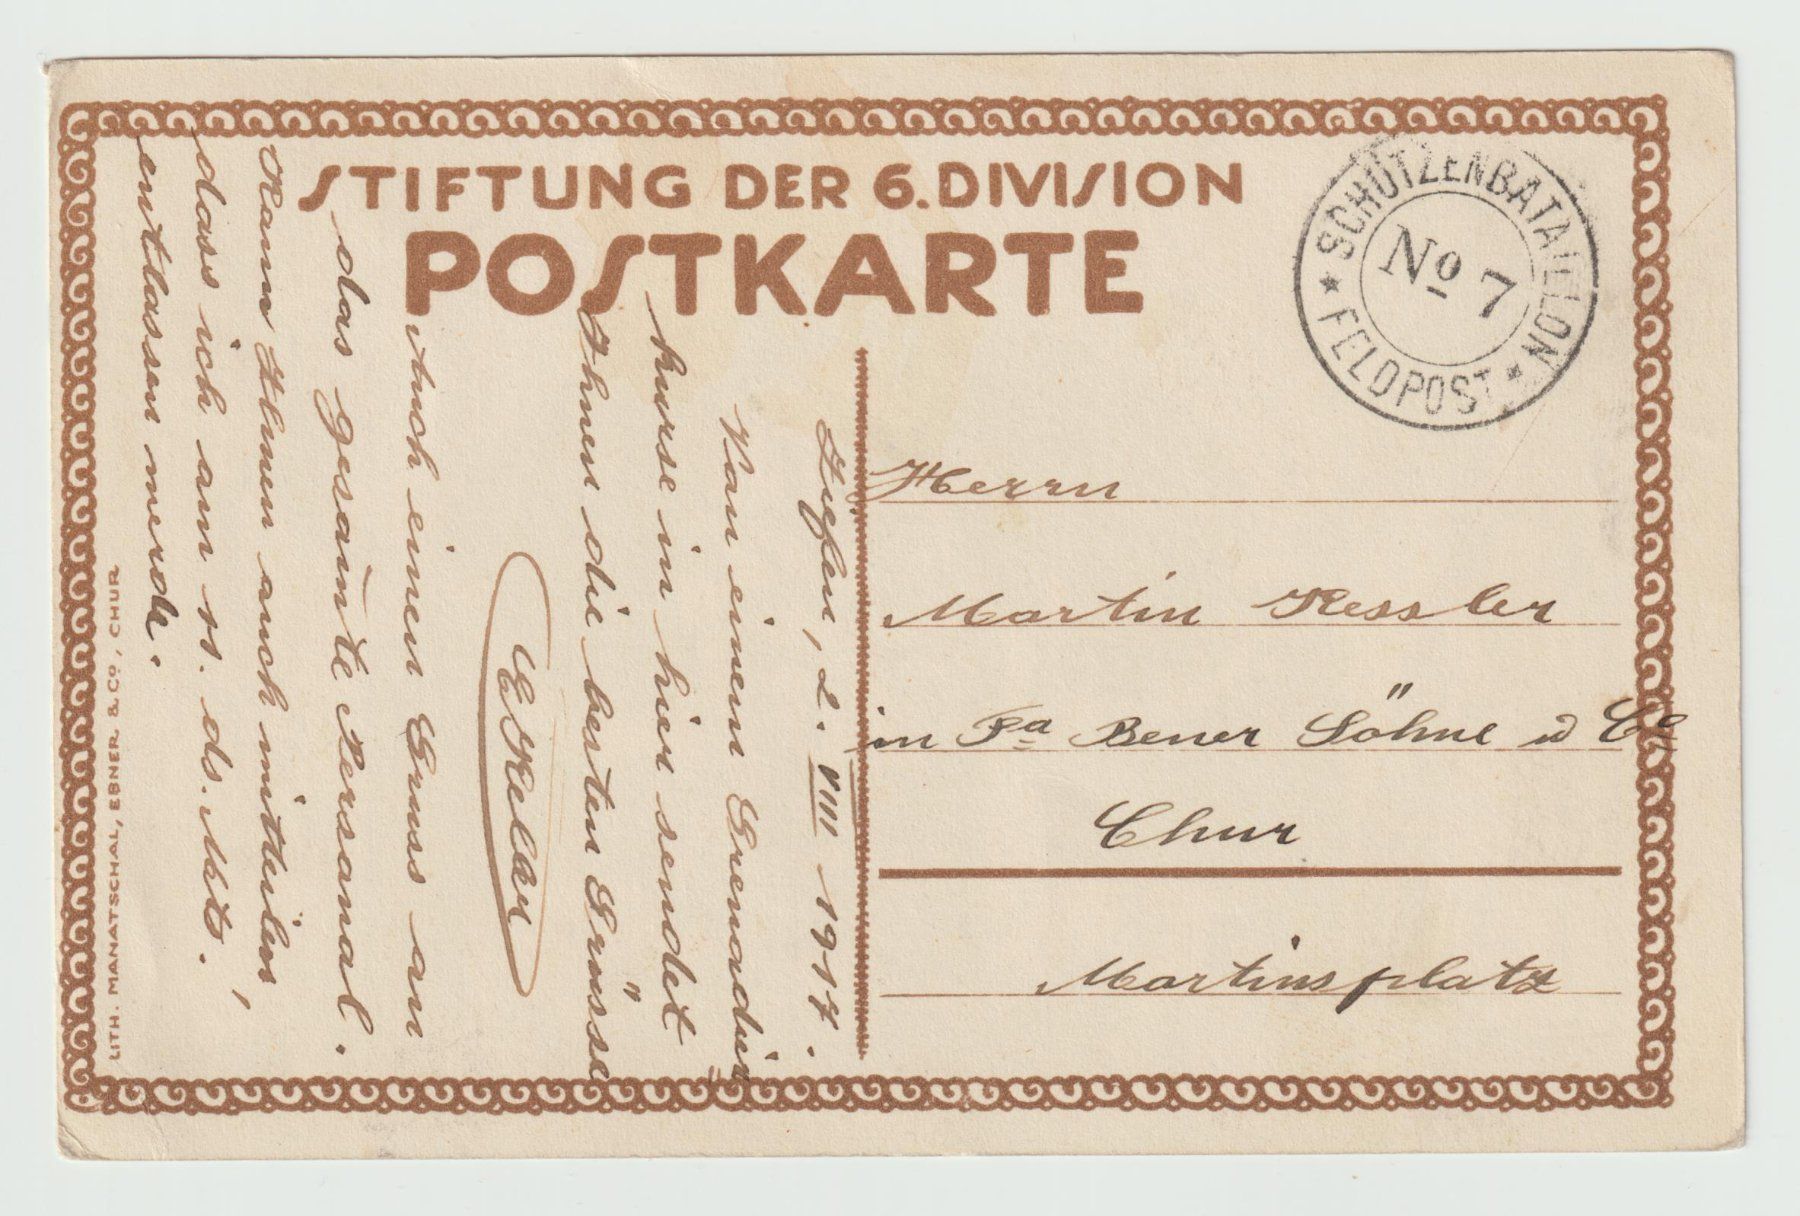 STIFTUNG DER 6. DIVISION
POSTKARTE
SCHÜTZENBATAILLON
No 7
* FELDPOST *
Herrn
Martin Kessler
in Fa Bener Söhne u Co
Chur
Martinsplatz
2. VIII 1917.
Von einem Grenadier=
kurse in hier sendet
Ihnen die besten Grüsse
EKeller
Auch einen Gruss an
das gesam̄te Personal.
Kann Ihnen auch mitteilen,
dass ich am 11. ds. Mts.
entlassen werde.
LITH. MANATSCHAL, EBNER & Co, CHUR